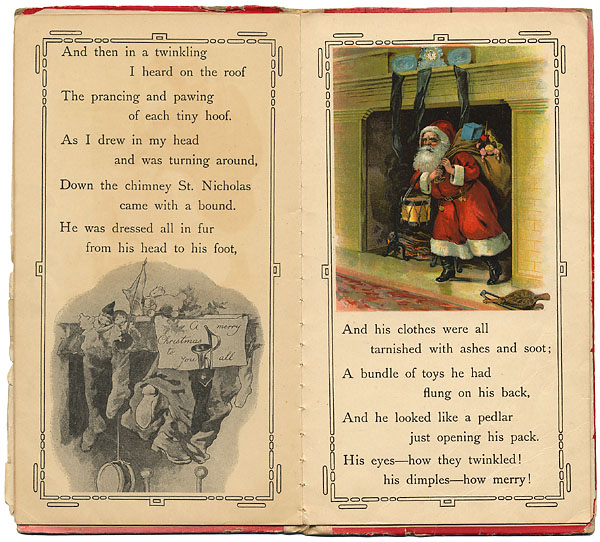 And then in a twinkling
I heard on the roof
The prancing and pawing
of each tiny hoof.
As I drew in my head
and was turning around,
Down the chimney St. Nicholas
came with a bound.
He was dressed all in fur
from his head to his foot,
A merry
Christmas
to you all
And his clothes were all
tarnished with ashes and soot;
A bundle of toys he had
flung on his back,
And he looked like a pedlar
just opening his pack.
His eyes—how they twinkled!
his dimples—how merry!